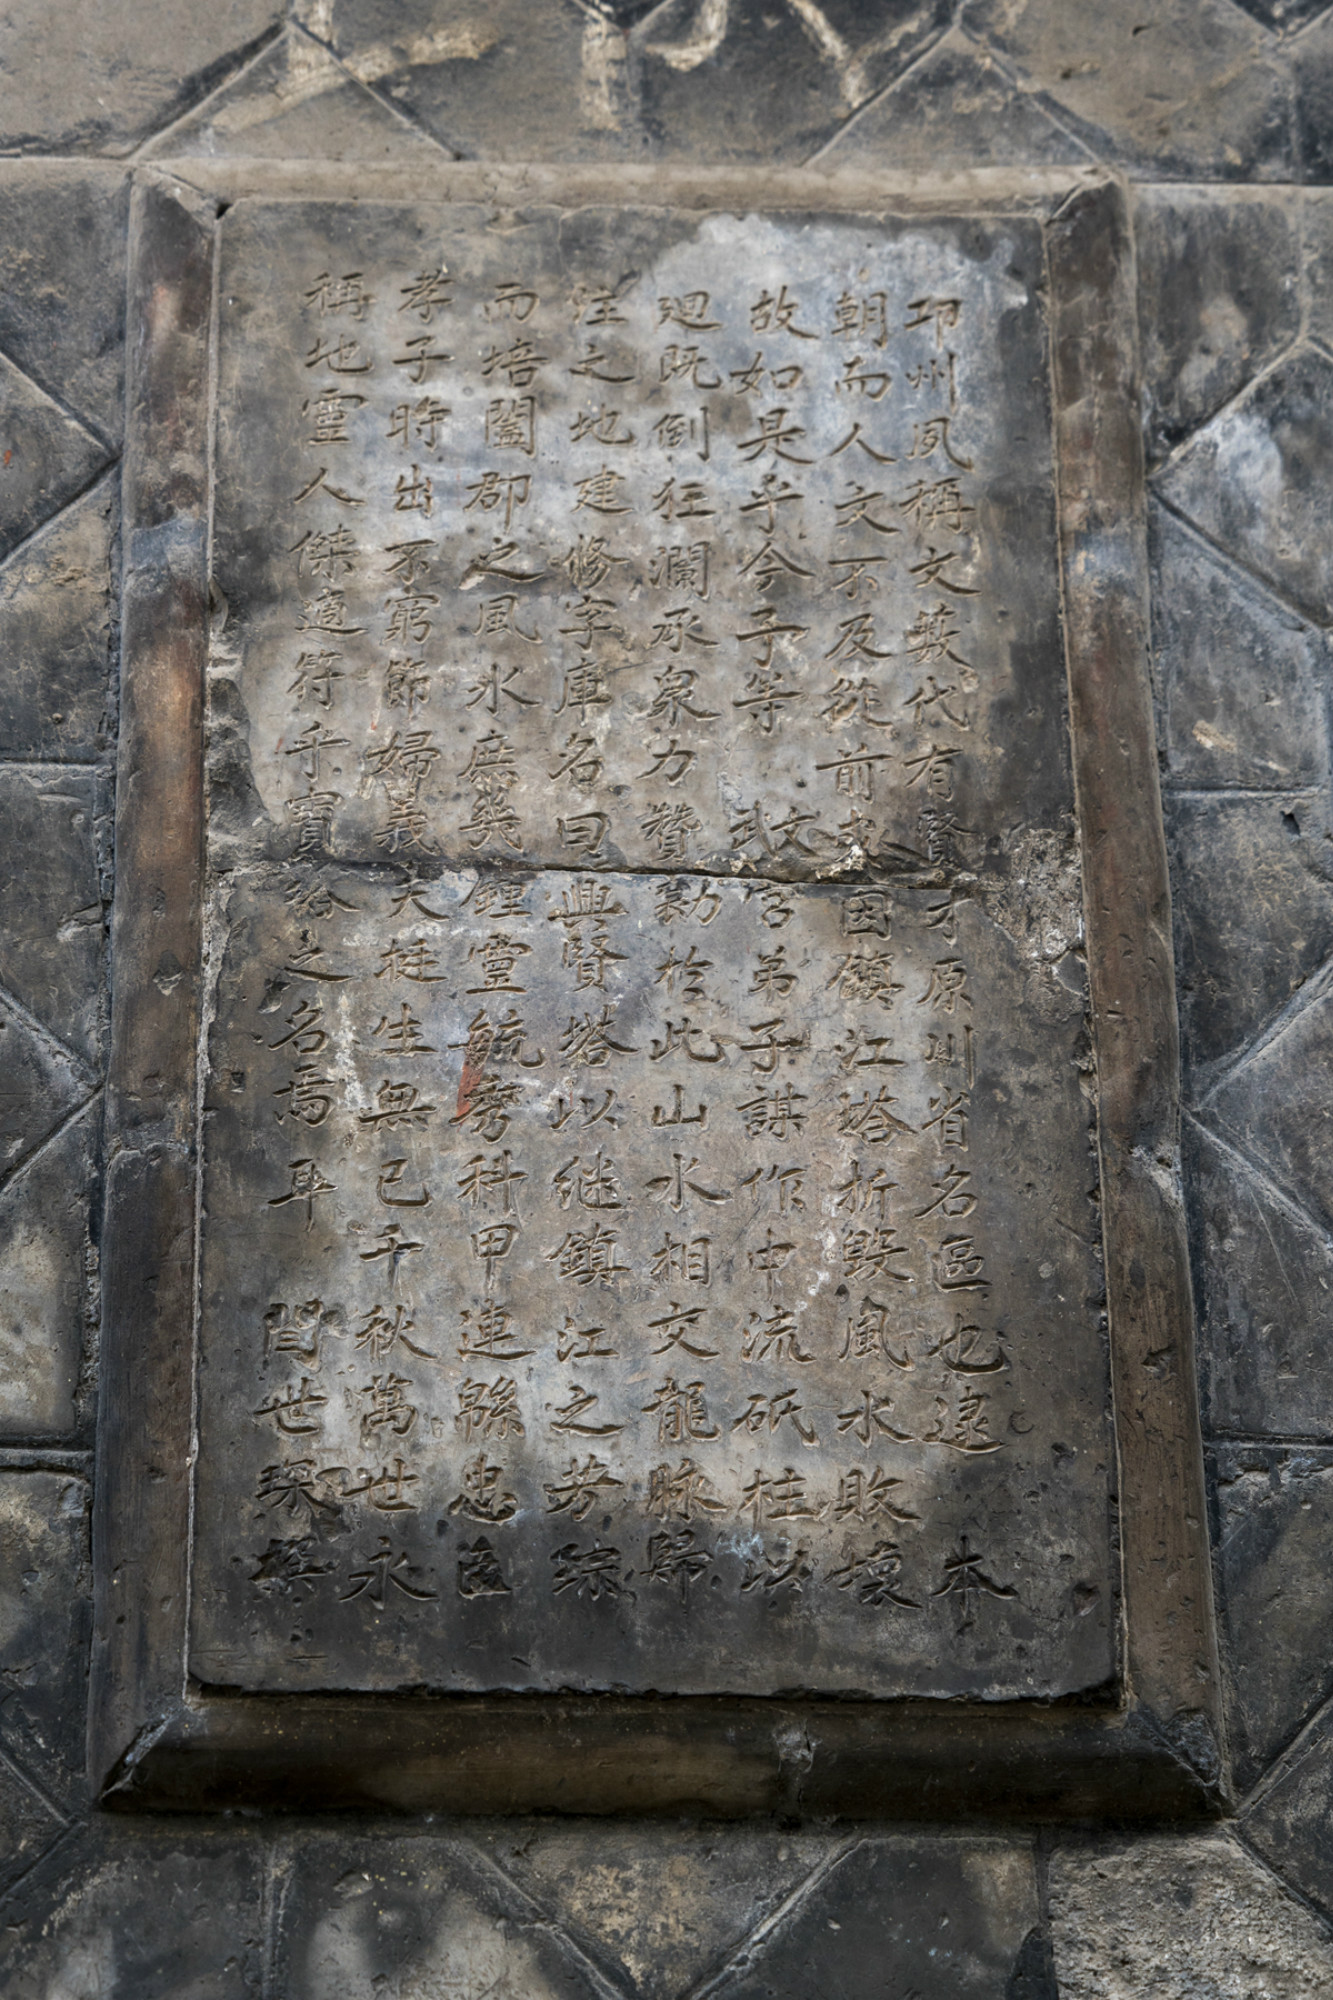 邛州夙稱文藪代有賢才原川省名區也逮 本
朝而人文不及從前者因鎮江塔折毀風水敗壞
故如是乎今子等 敃宫弟子謀作中流砥柱以
廻既倒狂瀾承泉力贊勷於此山水相交龍脉歸
注之地建修字庫名曰興賢塔以继鎮江之芳踪
而培闔郡之風水庶幾鍾靈毓秀科甲連緜忠臣
孝子時出不窮節婦義夫挺生無已千秋萬世永
稱地靈人傑適符乎實給之名焉耳 閆世琛撰